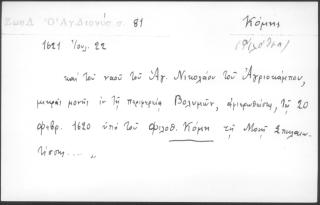 ΖωεΔ Ὁ Ἁγ Διονύσ σ. 81
Κόμης
(Φιλόθεος)
1621 Ἰουλ. 22
καί τοῦ ναοῦ τοῦ Ἁγ. Νικολάου τοῦ Ἀγριοκάμπου,
μικρᾶς μονῆς ἐν τῇ περιφερείᾳ Βολυμῶν, ἀφιερωθείσης, τῇ 20
φεβρ. 1620 ὑπό τοῦ φιλοθ. Κόμη τῇ Μονῇ Σπηλαιω-
τίσσης.... "